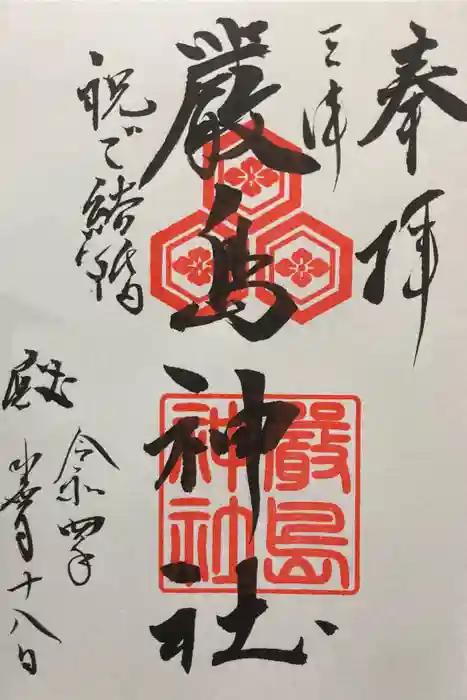 奉拝
三津
厳島神社
嚴島
神社
祝ご結婚
殿
令和四年
月十八日